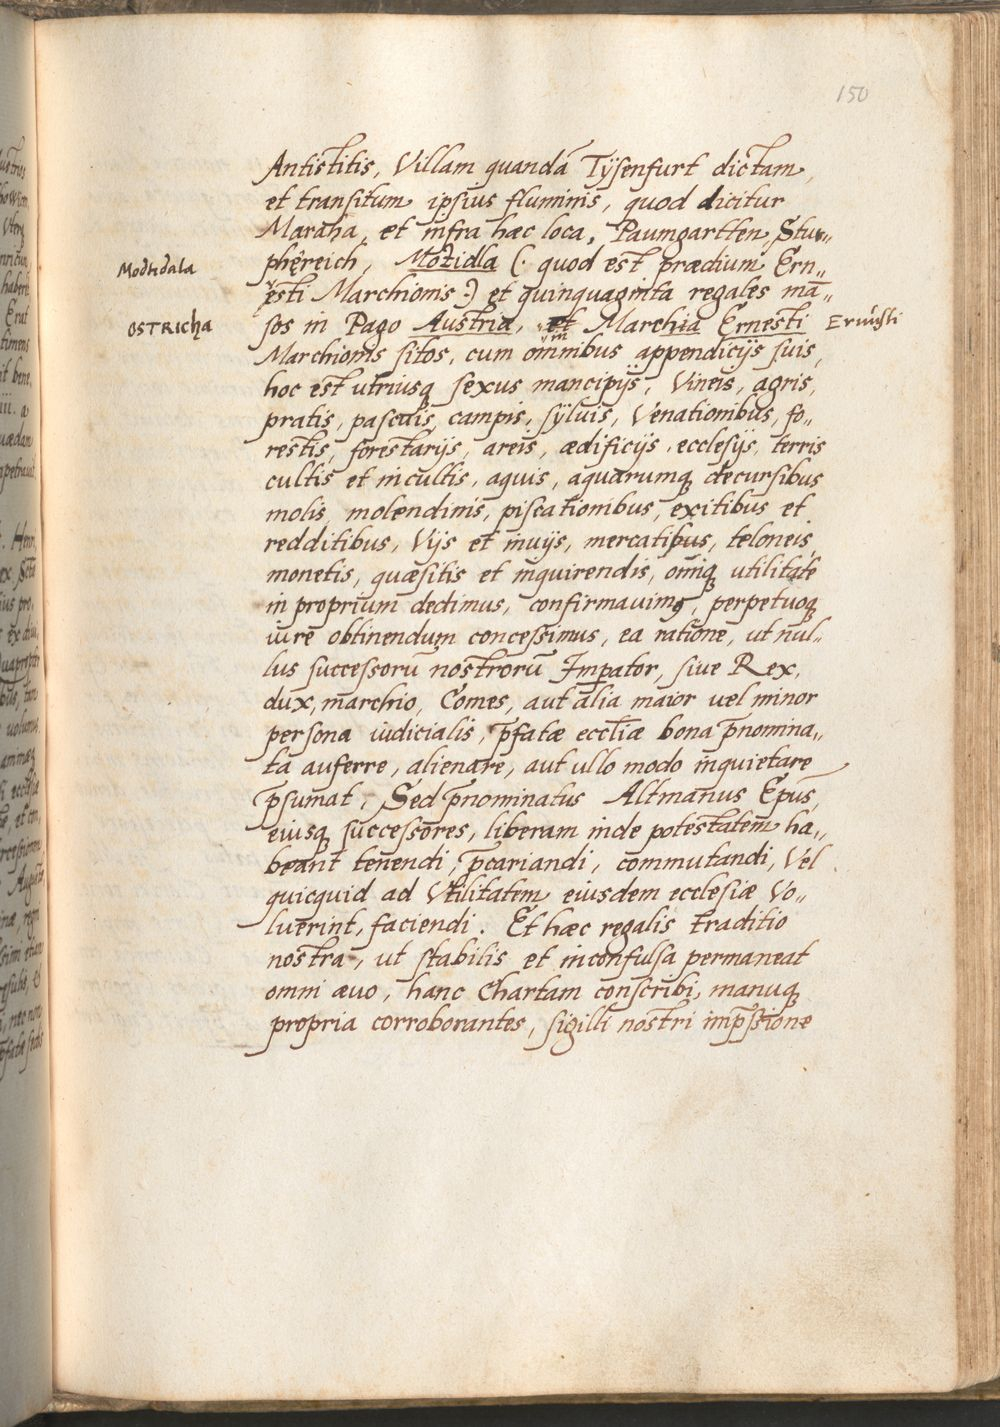 150
Antistitis, Villam quandā Tÿsenfurt dictam,
et transitum ipsius fluminis, quod dicitur
Maraha, et infra hæc loca, Paumgartten, Stur„
Modtdala
phęreich, Motzidla (. quod est prædium Ern„
esti Marchionis :) et quinquaginta regales mā„
OSTRICHA
sos in Pago Austria, in Marchia Ernesti
Ernusti
Marchionis sitos, cum omnibus appendicijs suis,
hoc est utriusq sexus mancipijs, Vineis, agris,
pratis, pascuis, campis, sÿluis, Venationibus, fo„
restis, forestarijs, areis, ædificijs, ecclesijs, terris
cultis et incultis, aquis, aquarumq decursibus
molis, molendinis, piscationibus, exitibus et
redditibus, Vijs et inuijs, mercatibus, teloneis,
monetis, quæsitis et inquirendis, omniq utilitate
in proprium dedimus, confirmauimꝰ, perpetuoq
iure obtinendum concessimus, ea ratione, ut nul„
lus successorū nostrorū Imperator, siue Rex,
dux, marchio, Comes, aut alia maior uel minor
persona iudicialis, p̄fatæ eccl̄iæ bona p̄nomina„
ta auferre, alienare, aut ullo modo inquietare
p̄sumat, Sed p̄nominatus Altmanus Ep̄us,
eiusq successores, liberam inde potestatem ha„
beant tenendi, p̄cariandi, commutandi, Vel
quicquid ad Vtilitatem eiusdem ecclesiæ Vo„
luerint, faciendi. Et hæc regalis traditio
nostra, ut stabilis et inconfulsa permaneat
omni æuo, hanc Chartam conscribi, manuq
propria corroborantes, sigilli nostri imp̄ssione